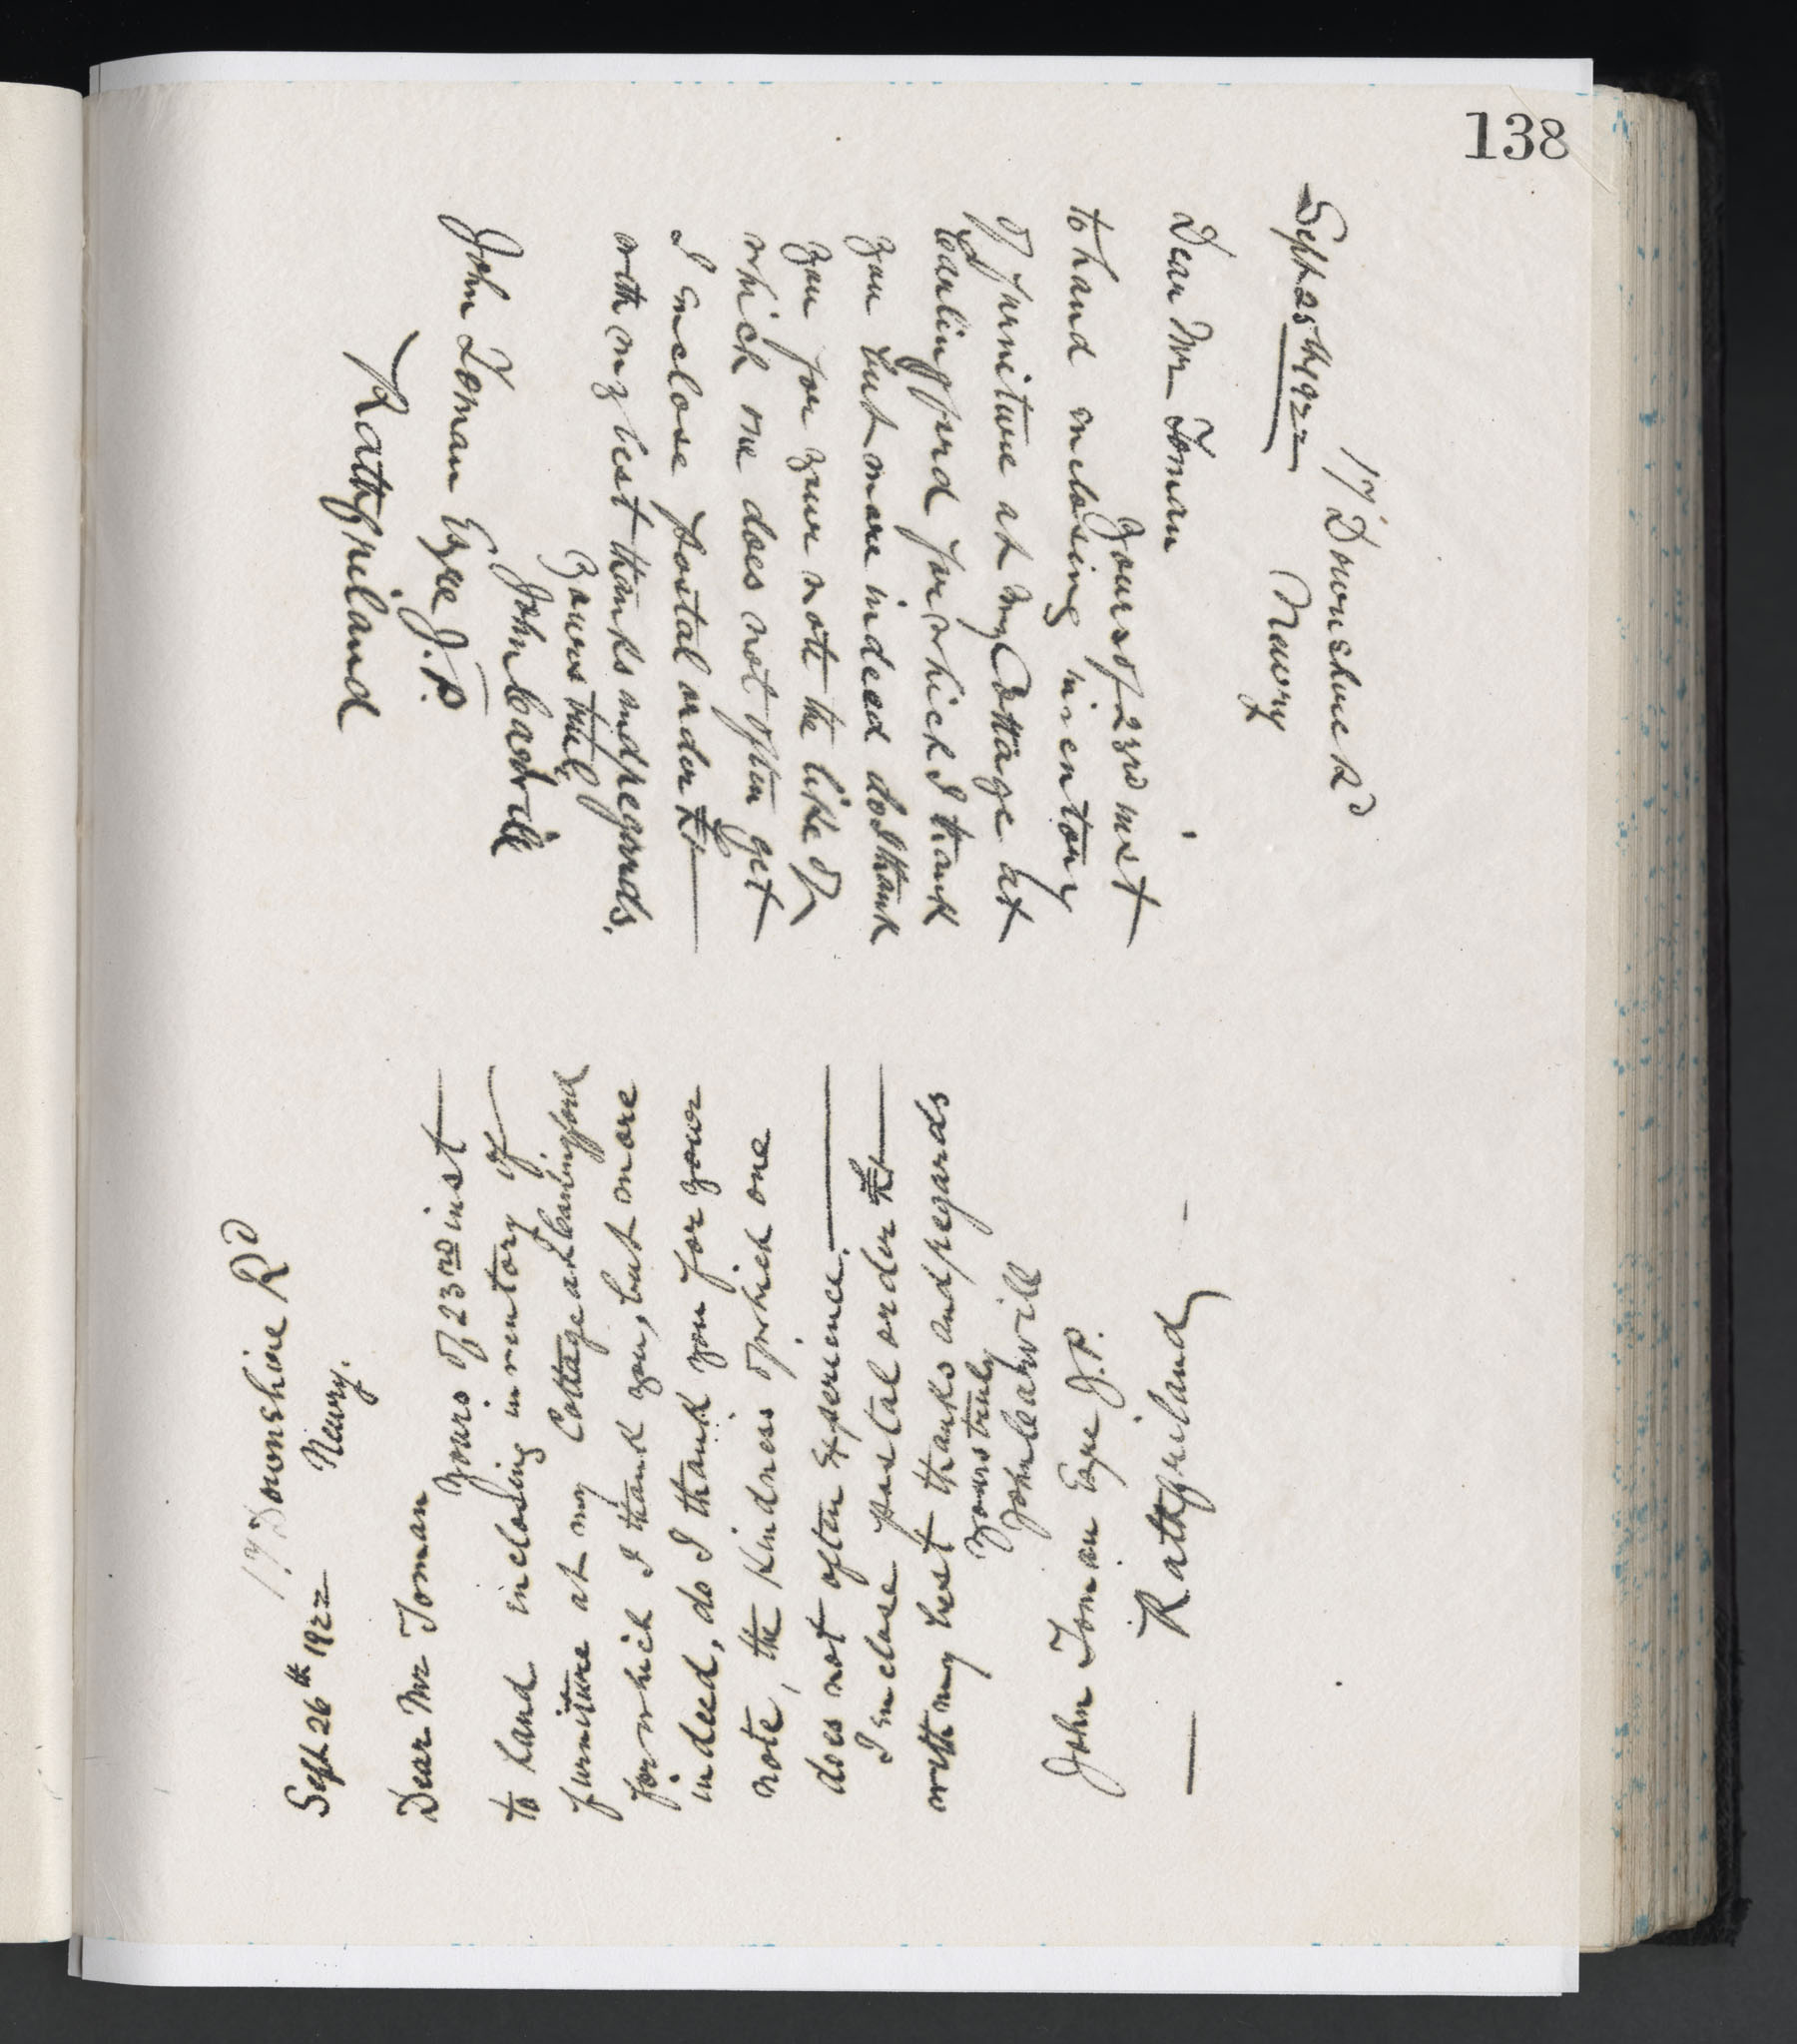 138
17 Downshire Rd
Sept 25th 1922
Newry
Dear Mr Toman
Yours of 23rd inst
to hand inclosing inventory
of furniture at my Cottage at
Carlingford for which I thank
you but more indeed do I thank
you for your note the like of
which one does not often get
I enclose postal order
with my best thanks and regards.
Yours truly
John Cartvill
John Toman Esqre J.P.
Rathfriland
17 Downshire Rd
Newry.
Sept 26th 1922
Dear Mr Toman
Yours of 23rd inst
to hand inclosing inventory of
furniture at my Cottage at Carlingford
for which I thank you, but more
indeed, do I thank you for your
note, the kindness of which one
does not often experience.
I enclose postal order
with my best thanks and regards
Yours truly
John Cartvill
John Toman Esqre J.P.
Rathfriland